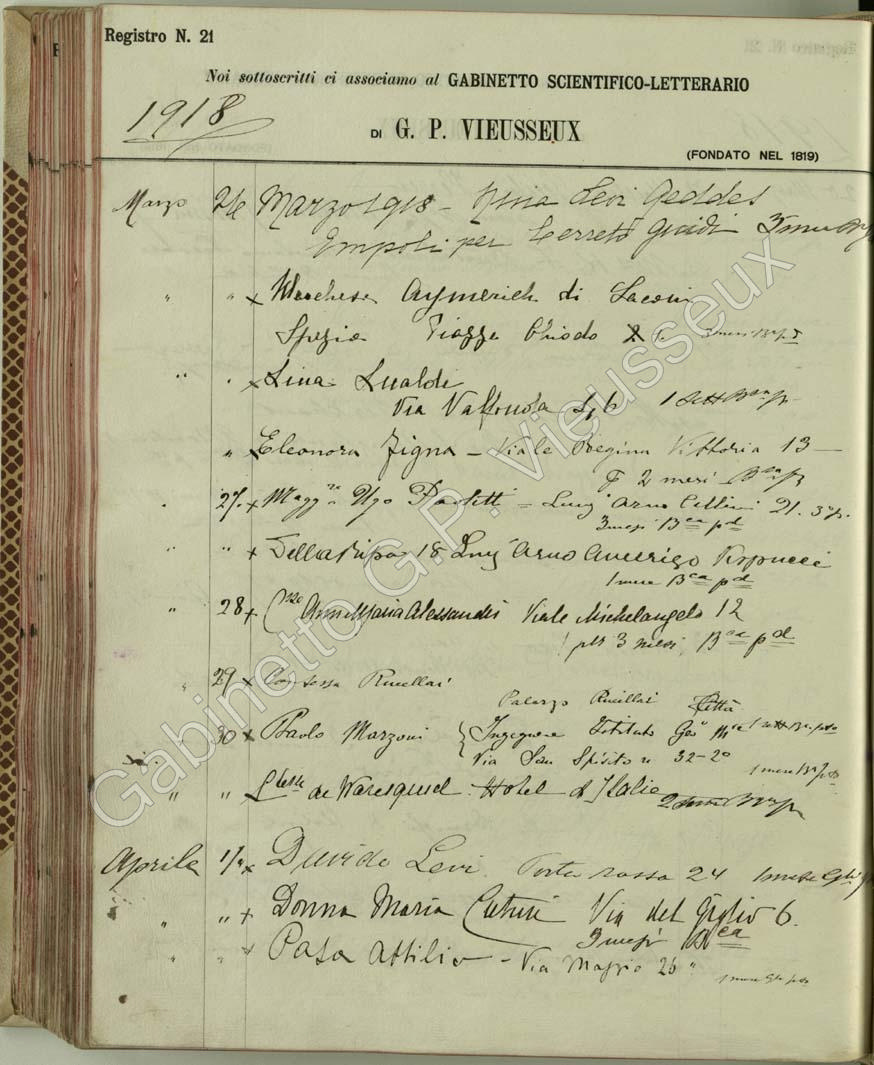 Registro N. 21
Noi sottoscritti ci associamo al GABINETTO SCIENTIFICO-LETTERARIO
1918
DI G. P. VIEUSSEUX
(FONDATO NEL 1819)
Marzo 26 Marzo 1918 - Nina Levi Geddes
Empoli per Cerreto Guidi 3 mesi
" " x Marchesa Aymerich di Laconi
Spezia Piazza Chiodo 3 mesi
" " x Lina Lualdi
Via Valfonda 1 sett
" x Eleonora Zigna - Viale Regina Vittoria 13 -
2 mesi
27 x Magg.re Ugo Paoletti = Lung'Arno Cellini 21. 3° p.
3 mesi B ca pd
" " x Della Ripa 18 Lung'Arno Amerigo Vespucci
1 mese B ca pd
" 28 x Anna Maria Alessandri Viale Michelangelo 12
3 mesi B ca pd
" 29 x Contessa Rucellai
Palazzo Rucellai Città
30 x Paolo Marzoni Ingegnere Istituto Geo Mre 1 sett
Via San Spirito n 32-2°
1 mese
" " Ctesse de Waresquiel Hotel d'Italie
2
Aprile 1/4 x Davide Levi. Porta rossa 24 1 mese
" " + Donna Maria Via del Giglio 6.
3 mesi ca
" " + Pasa Attilio - Via Maggio 26
1 mese
Gabinetto G.P. Vieusseux